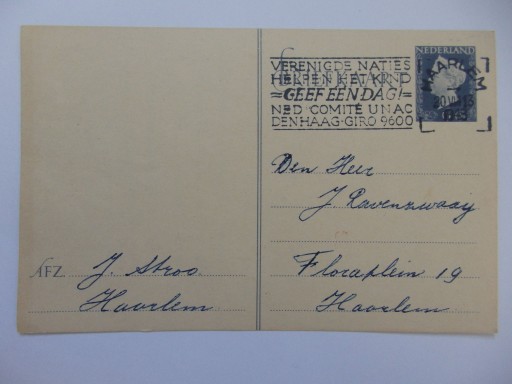 VERENIGDE NATIES
HELPEN HET KIND
=GEEF EEN DAG!=
NED COMITÉ UNAC
DEN HAAG-GIRO 9600
NEDERLAND
HAARLEM
Den Heer
J Ravenzwaaij
Floraplein 19
Haarlem
AFZ. J. Stroo
Haarlem